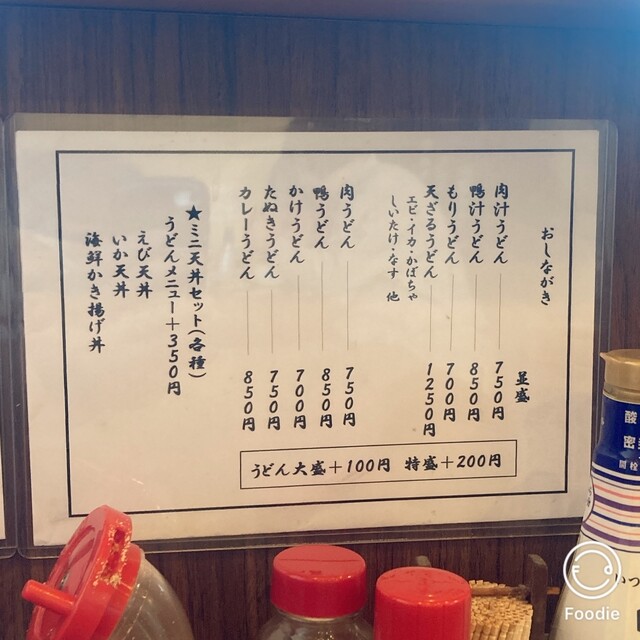 おしながき
並盛
肉汁うどん 750円
鴨汁うどん 850円
もりうどん 700円
天ざるうどん 1250円
エビ・イカ・かぼちゃ
しいたけ・なす 他
肉うどん 750円
鴨うどん 850円
かけうどん 700円
たぬきうどん 750円
カレーうどん 850円
★ミニ天丼セット(各種)
うどんメニュー+350円
えび天丼
いか天丼
海鮮かき揚げ丼
うどん大盛+100円 特盛+200円
酸
開栓
Foodie